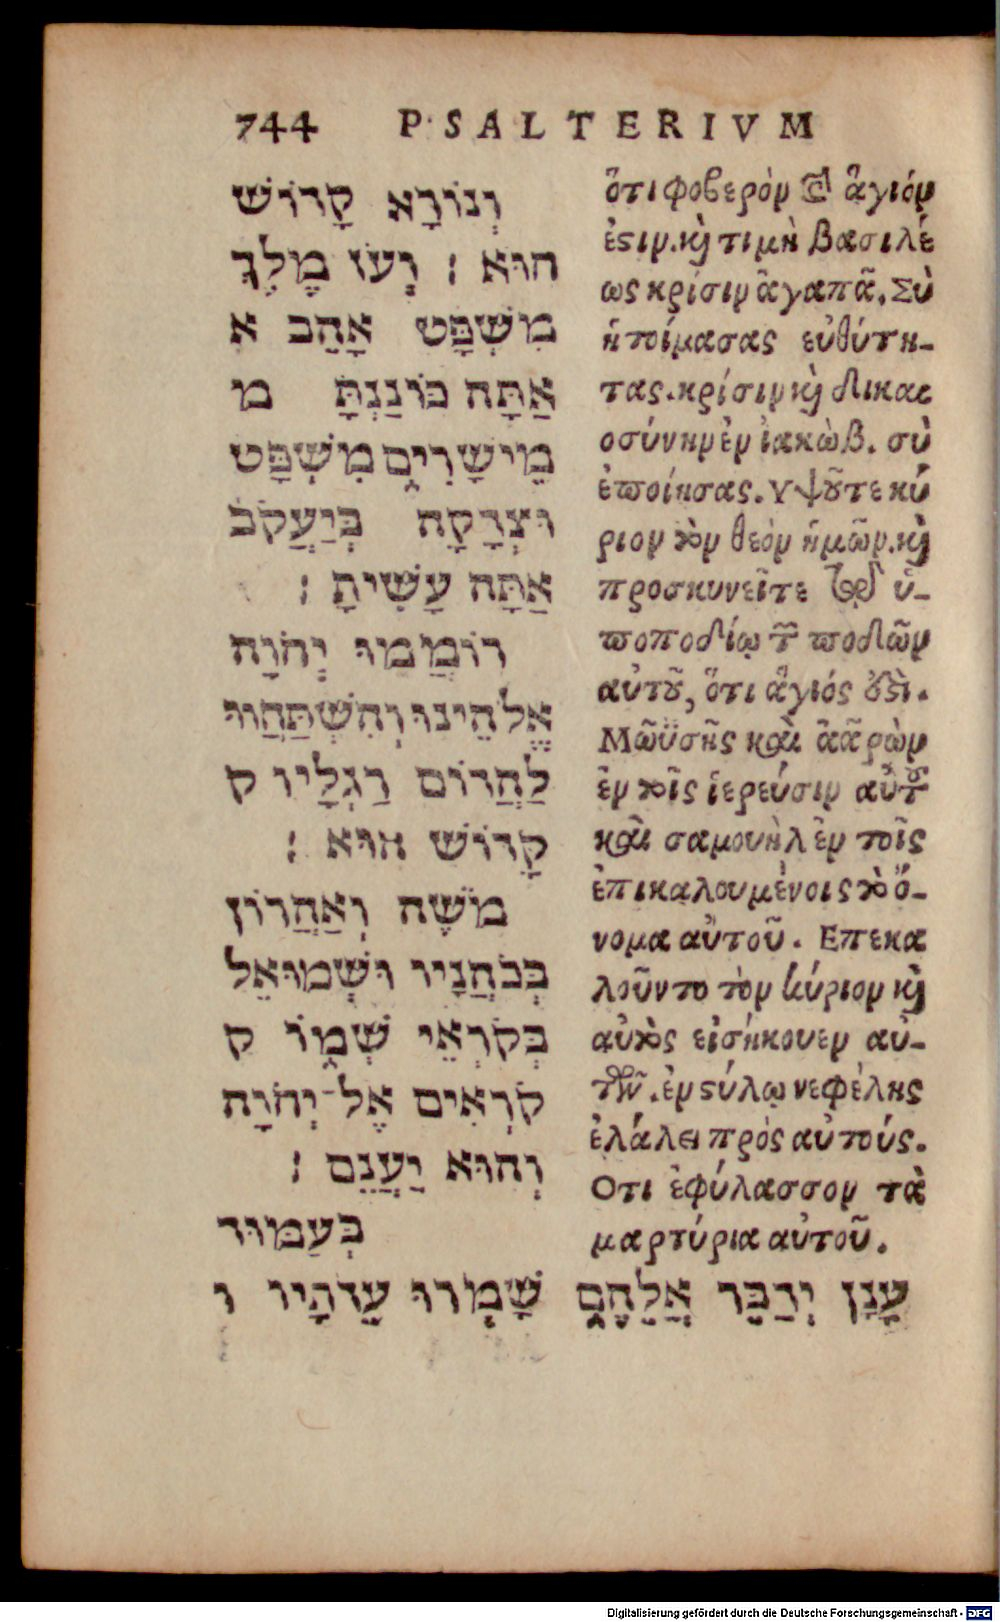 744 PSALTERIVM
וְנוֹרָא קָדוֹשׁ
הוּא ׃ וְעֹז מֶלֶךְ
מִשְׁפָּט אָהֵב א
אַתָּה כּוֹנַנְתָּ מ
מֵישָׁרִים מִשְׁפָּט
וּצְדָקָה בְּיַעֲקֹב
אַתָּה עָשִׂיתָ ׃
רוֹמֲמוּ יְהֹוָה
אֱלֹהֵינוּ וְהִשְׁתַּחֲווּ
לַהֲדוֹם רַגְלָיו ק
קָדוֹשׁ הוּא ׃
מֹשֶׁה וְאַהֲרוֹן
בְּכֹהֲנָיו וּשְׁמוּאֵל
בְּקֹרְאֵי שְׁמוֹ ק
קֹרְאִים אֶל־יְהֹוָה
וְהוּא יַעֲנֵם ׃
בְּעַמּוּד
עָנָן יְדַבֵּר אֲלֵהֶם שָׁמְרוּ עֵדֹתָיו ו
ὅτι φοβερὸν καὶ ἅγιόν
ἐϛιν. καὶ τιμὴ βασιλέ
ως κρίσιν ἀγαπᾶ. Σὺ
ἡτοίμασας εὐθύτη-
τας. κρίσιν καὶ δικαι
οσύνην ἐν ἰακὼβ. σὺ
ἐποίησας. Υψοῦτε κύ
ριον τὸν θεὸν ἡμῶν. καὶ
προσκυνεῖτε τῷ ὑ-
ποποδίῳ τῶν ποδῶν
αὐτοῦ, ὅτι ἅγιός ἐϛι.
Μωϋσῆς καὶ ἀαρὼν
ἐν τοῖς ἱερεύσιν αὐτοῦ
καὶ σαμουὴλ ἐν τοῖς
ἐπικαλουμένοις τὸ ὄ-
νομα αὐτοῦ. Επεκα
λοῦντο τὸν κύριον καὶ
αὐτὸς εἰσήκουεν αὐ-
τῶν. ἐν ϛύλῳ νεφέλης
ἐλάλει πρὸς αὐτούς.
Οτι ἐφύλασσον τὰ
μαρτύρια αὐτοῦ.
Digitalisierung gefördert durch die Deutsche Forschungsgemeinschaft - DFG